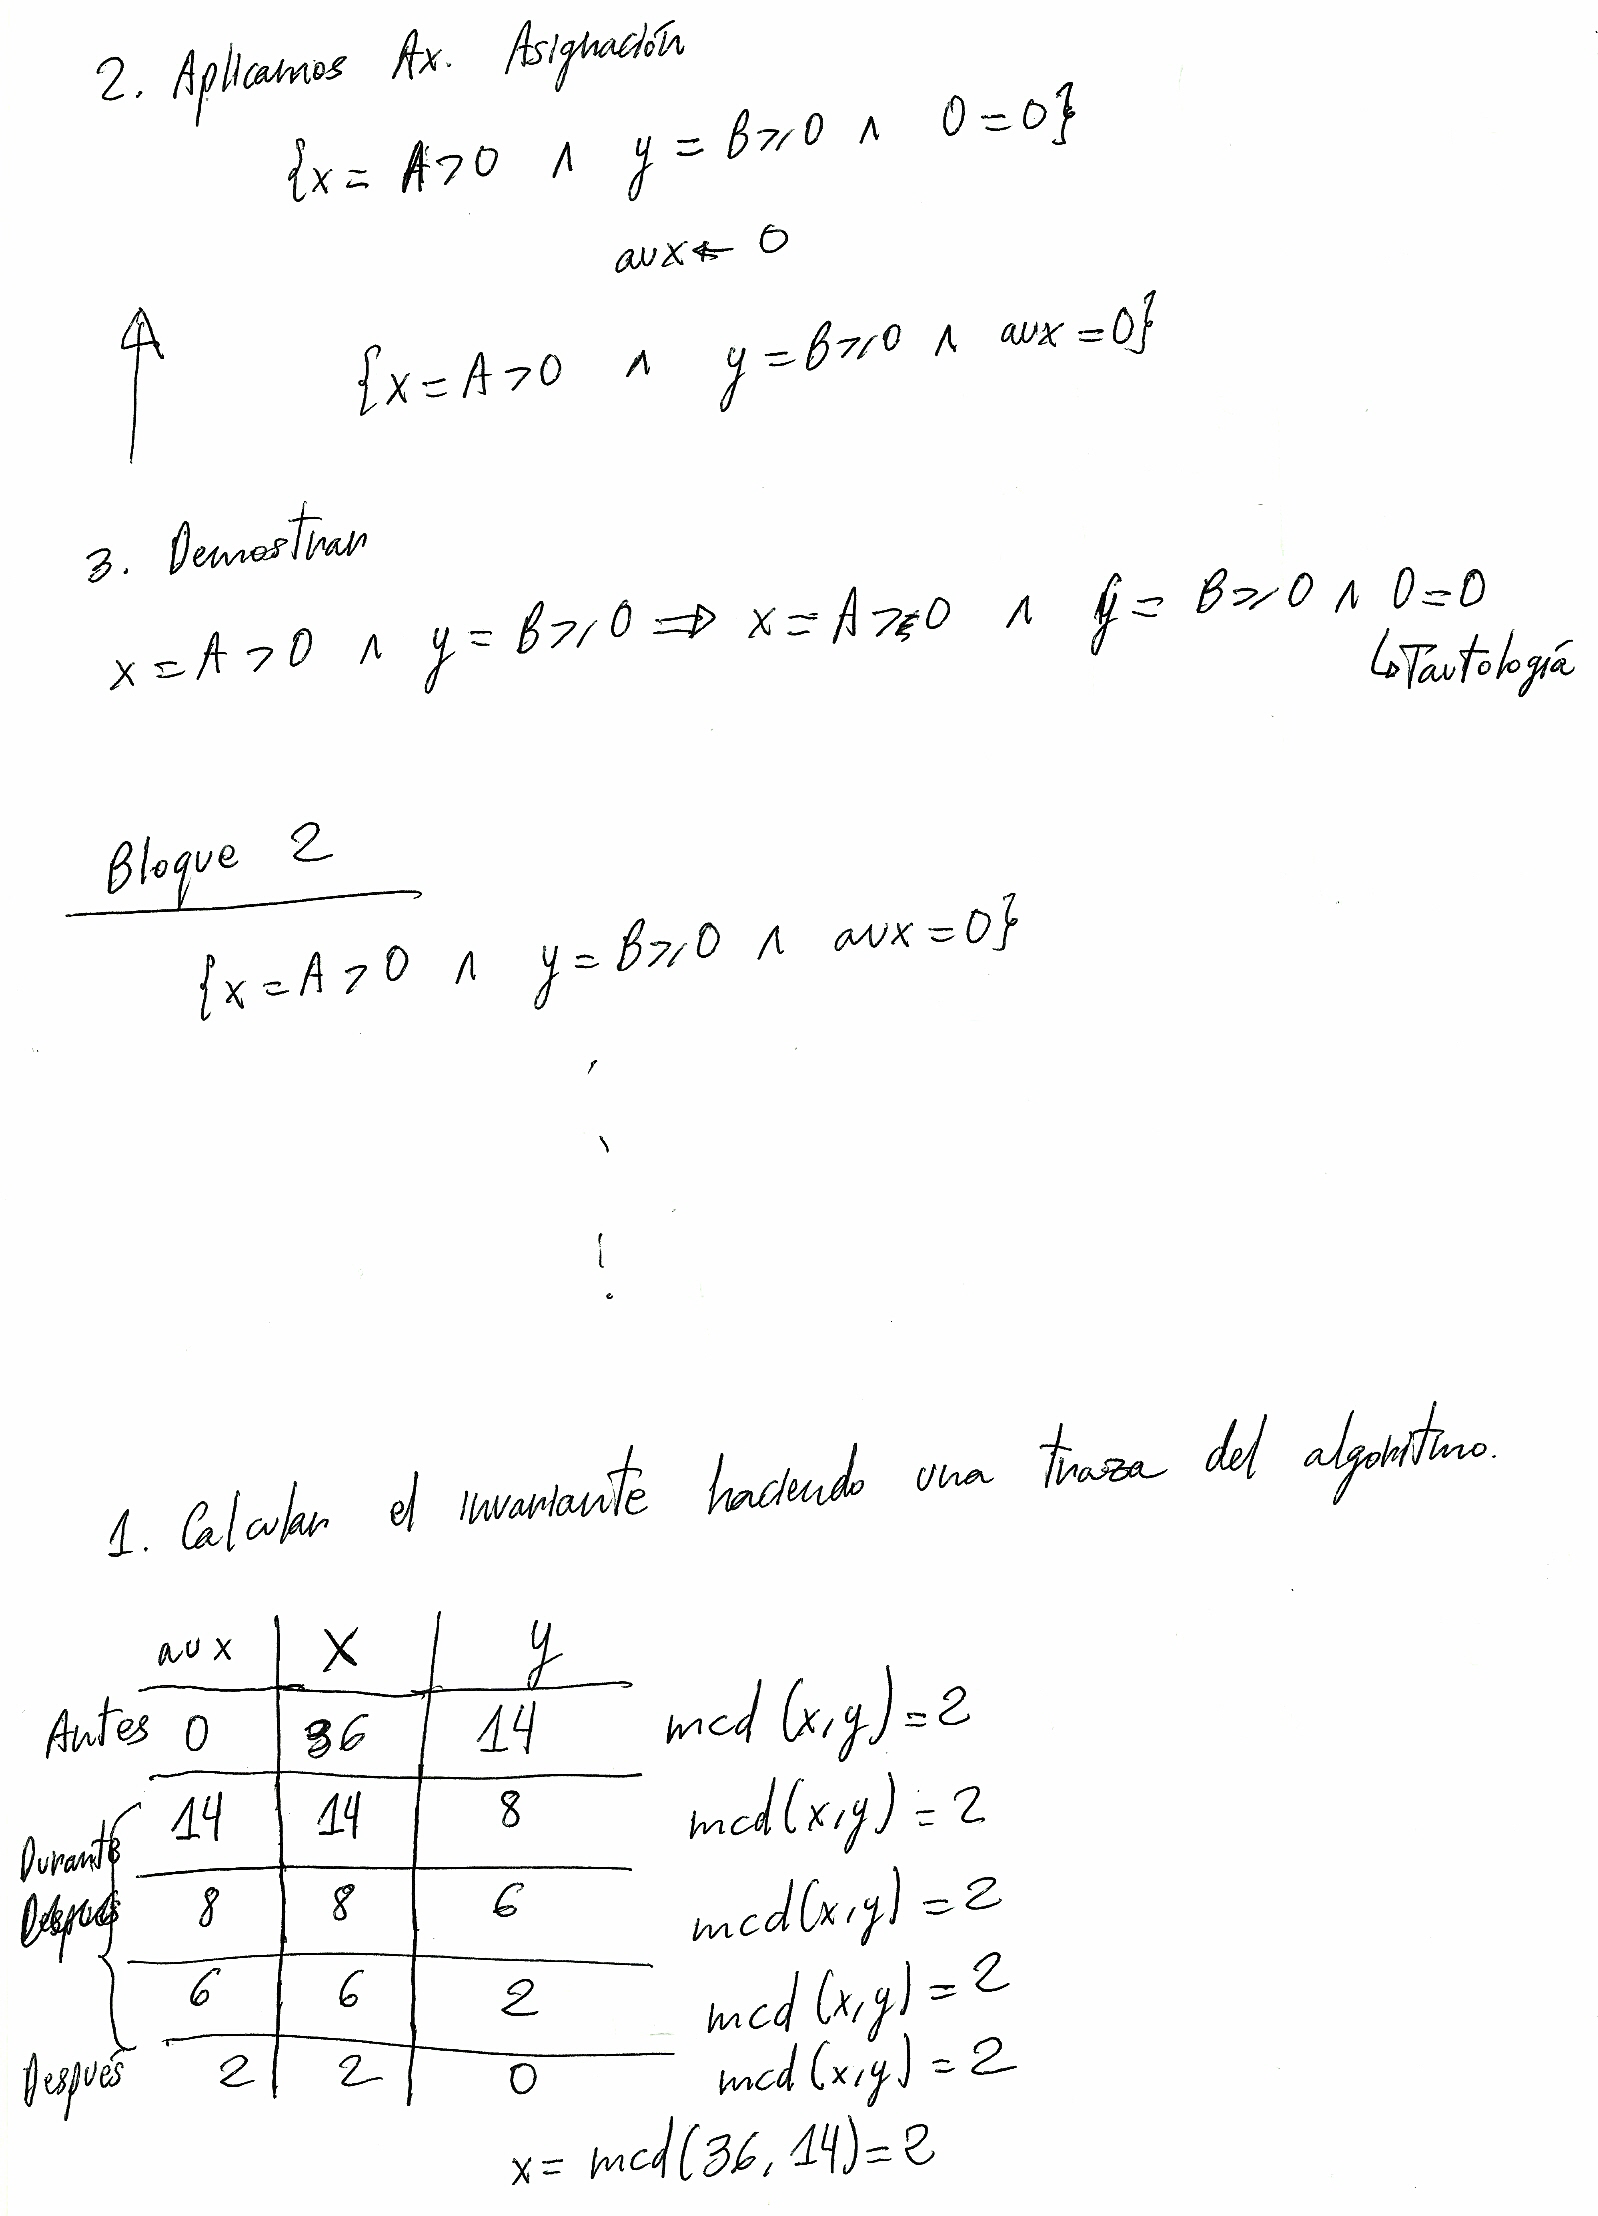 2. Aplicamos Ax. Asignación
{x = A > 0 ∧ y = B ≥ 0 ∧ 0 = 0}
aux ← 0
{x = A > 0 ∧ y = B ≥ 0 ∧ aux = 0}
3. Demostrar
x = A > 0 ∧ y = B ≥ 0 ⇒ x = A > 0 ∧ y = B ≥ 0 ∧ 0 = 0
↳ Tautología
Bloque 2
{x = A > 0 ∧ y = B ≥ 0 ∧ aux = 0}
1. Calcular el invariante haciendo una traza del algoritmo.
aux x y
Antes 0 36 14 mcd (x,y) = 2
14 14 8 mcd (x,y) = 2
Durante
8 8 6 mcd (x,y) = 2
6 6 2 mcd (x,y) = 2
Después 2 2 0 mcd (x,y) = 2
x = mcd(36, 14) = 2